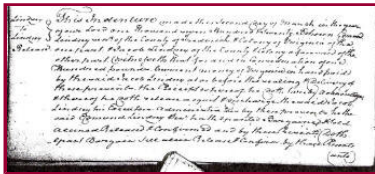 Lindsey
to
Lindsey
Release
This Indenture made the Second day of March in the year
of our Lord one Thousand Seven Hundred Seventy Between Edmund
Lindsey of the County of Frederick & Colony of Virginia of the
one part & Jacob Lindsey of the County & Colony aforesaid of the
other part Witnesseth that for and in Consideration of
Hundred pounds Current money of Virginia in hand paid
by the said Jacob Lindsey at or before the sealing & delivery of
these presents the Receipt whereof he doth hereby acknowledge
& thereof he doth release acquit & discharge the said Jacob
Lindsey his Executors & Administrators by these presents he the
said Edmund Lindsey hath granted Bargained Sold
aliened Released & Confirmed and by these Presents Doth
grant Bargain Sell alien Release & Confirm by these Presents